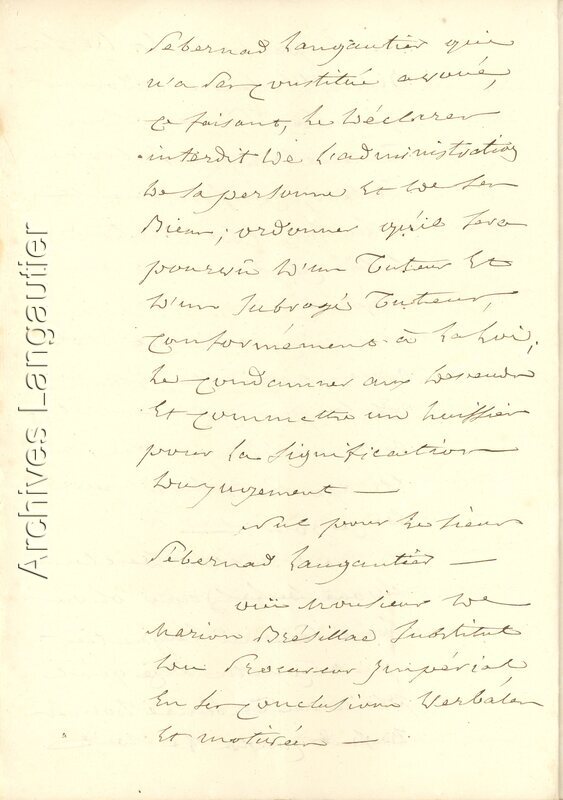 Sebernad Langautier qui
n'a pas constitué avoué,
ce faisant, le déclarer
interdit de l'administration
de sa personne et de ses
Biens; ordonner qu'il sera
pourvû d'un Tuteur et
d'un Subrogé Tuteur,
conformément à la loi;
le condamner aux dépens
et commettre un huissier
pour la signification
du jugement —
Nul pour le sieur
Sébernad Langautier —
ouï Monsieur de
Marion Brésillac Substitut
du Procureur Impérial
en ses conclusions Verbales
et motivées —
Archives Langautier